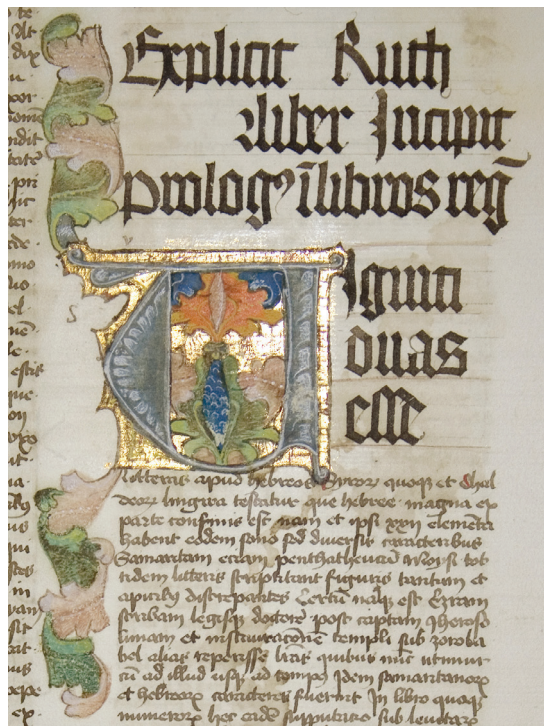 Explicit Ruth
liber Incipit
prolog' i libros reg
Viginti
duas
esse
litteras apud hebreos Siror quoque et Chal
deor lingwa testatur que hebree magna ex
parte confinis est nam et ipsi xxii elementa
habent eodem sono sed diversis caracteribus
Samaritani eciam penthatheucum Moysi tot
tidem litteris scriptitant figuris tantum et
apicibus discrepantes Certum namque est Ezram
scribam legisque doctorem post captam Iheroso
limam et instauracionem templi sub zoroba
bel alias reperisse literas quibus nunc utimur
cum ad illud usque ad tempus Idem samaritanor
et hebreor caracteres fuerint In libro quoque
numeror hec eadem supputatio sub levitar